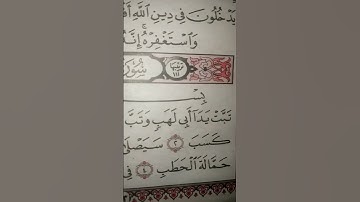 يَدْخُلُونَ فِي دِينِ اللَّهِ
وَاسْتَغْفِرْهُ ۚ
١١١
بِسْ
تَبَّتْ يَدَا أَبِي لَهَبٍ وَتَبَّ
كَسَبَ ٢ سَيَصْلَى
حَمَّالَةَ الْحَطَبِ ٤